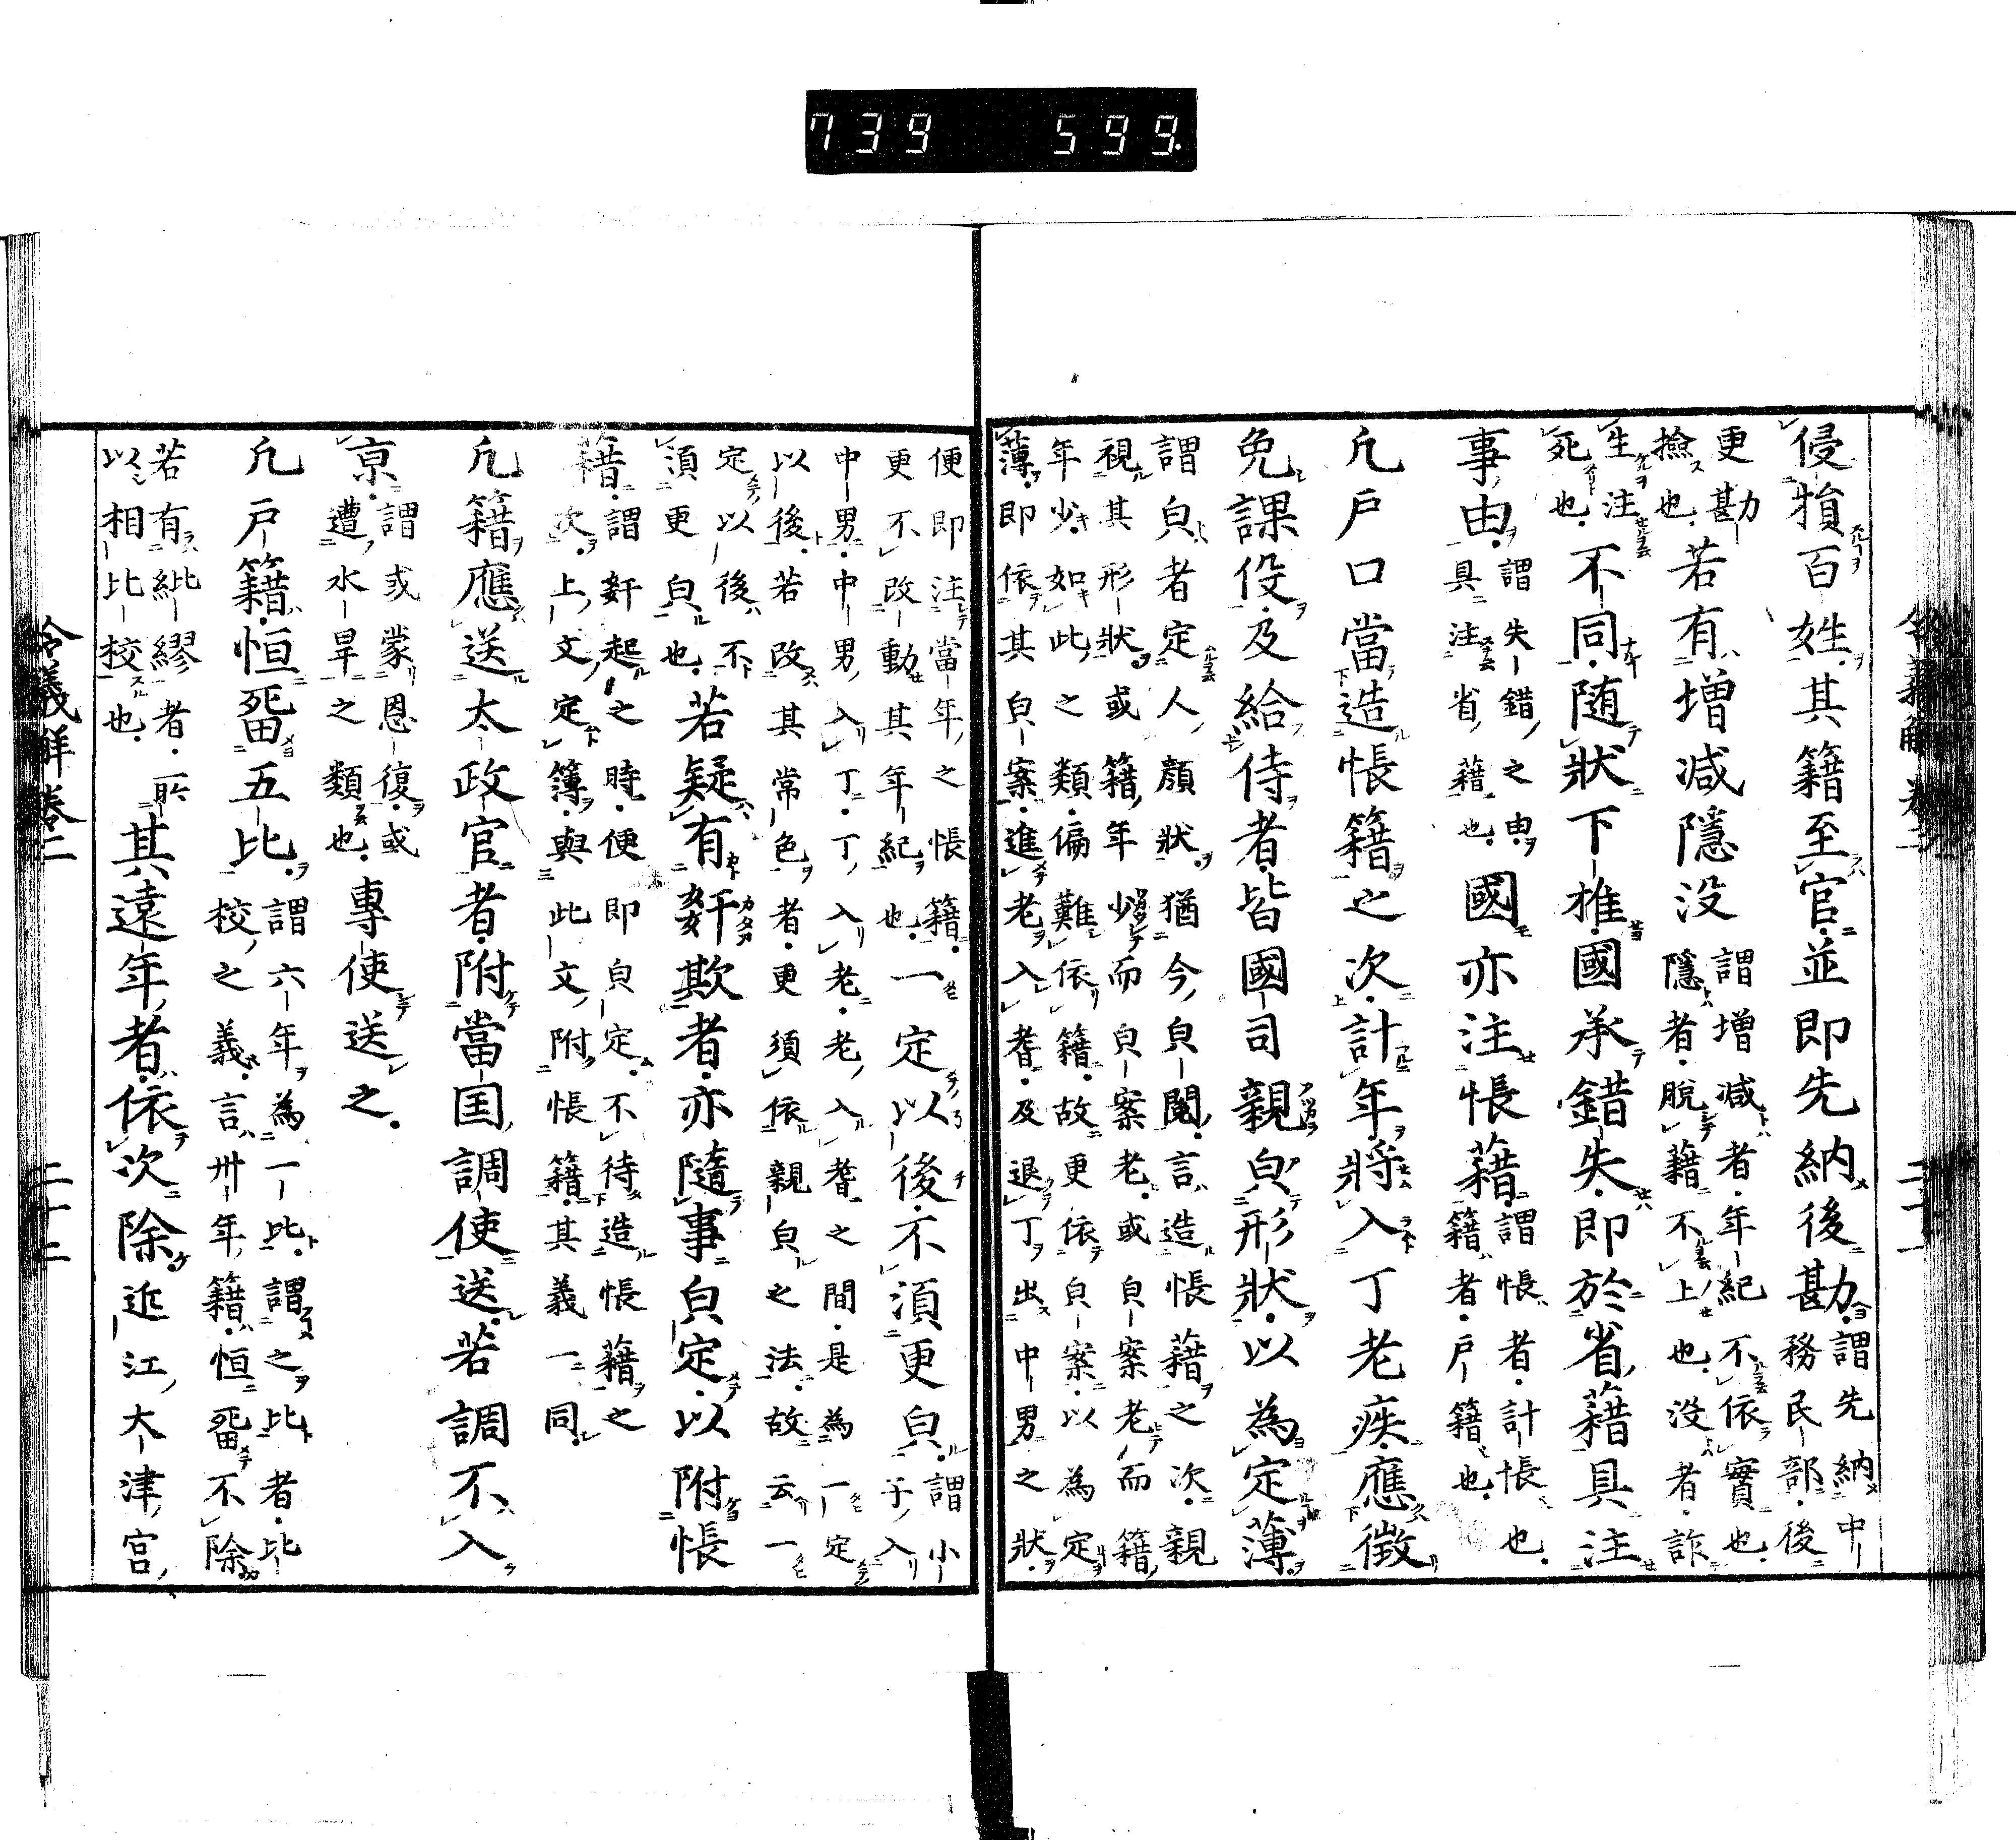 739 599
侵損百姓其籍至官並即先納後勘謂先納中務民部後
更勘撿也若有增減隱没謂增減者年紀不依實也隱者脱籍不上也没者詐
生注死也不同随狀下推國承錯失即於省藉具注
事由謂失錯之由具注省藉也國亦注帳藉謂帳者計帳也籍者戸籍也
凢戸口當造帳籍之次計年將入丁老疾應徴
免課役及給侍者皆國司親皃形狀以為定薄
謂皃者定人顔狀猶今皃閲言造帳藉之次親
視其形狀或籍年少而皃案老或皃案老而籍
年少如此之類偏難依籍故更依皃案以為定
薄即依其皃案進老入耆及退丁出中男之狀
便即注當年之帳籍也更不改動其年紀一定以後不須更皃謂小子入
中男中男入丁丁入老老入耆之間是為一定
以後若改其常色者更須依親皃之法故云一
定以後不須更皃也若疑有姧欺者亦隨事皃定以附帳
藉謂姧起之時便即皃定不待造帳藉之次上文定簿與此文附帳籍其義一同
凢籍應送太政官者附當国調使送若調不入
京謂或蒙恩復或遭水旱之類也專使送之
凢戸籍恒畱五比謂六年為一比謂之比者比校之義言卅年籍恒畱不除
若有紕繆者所以相比校也其遠年者依次除近江大津宮
令義解巻二 二十二